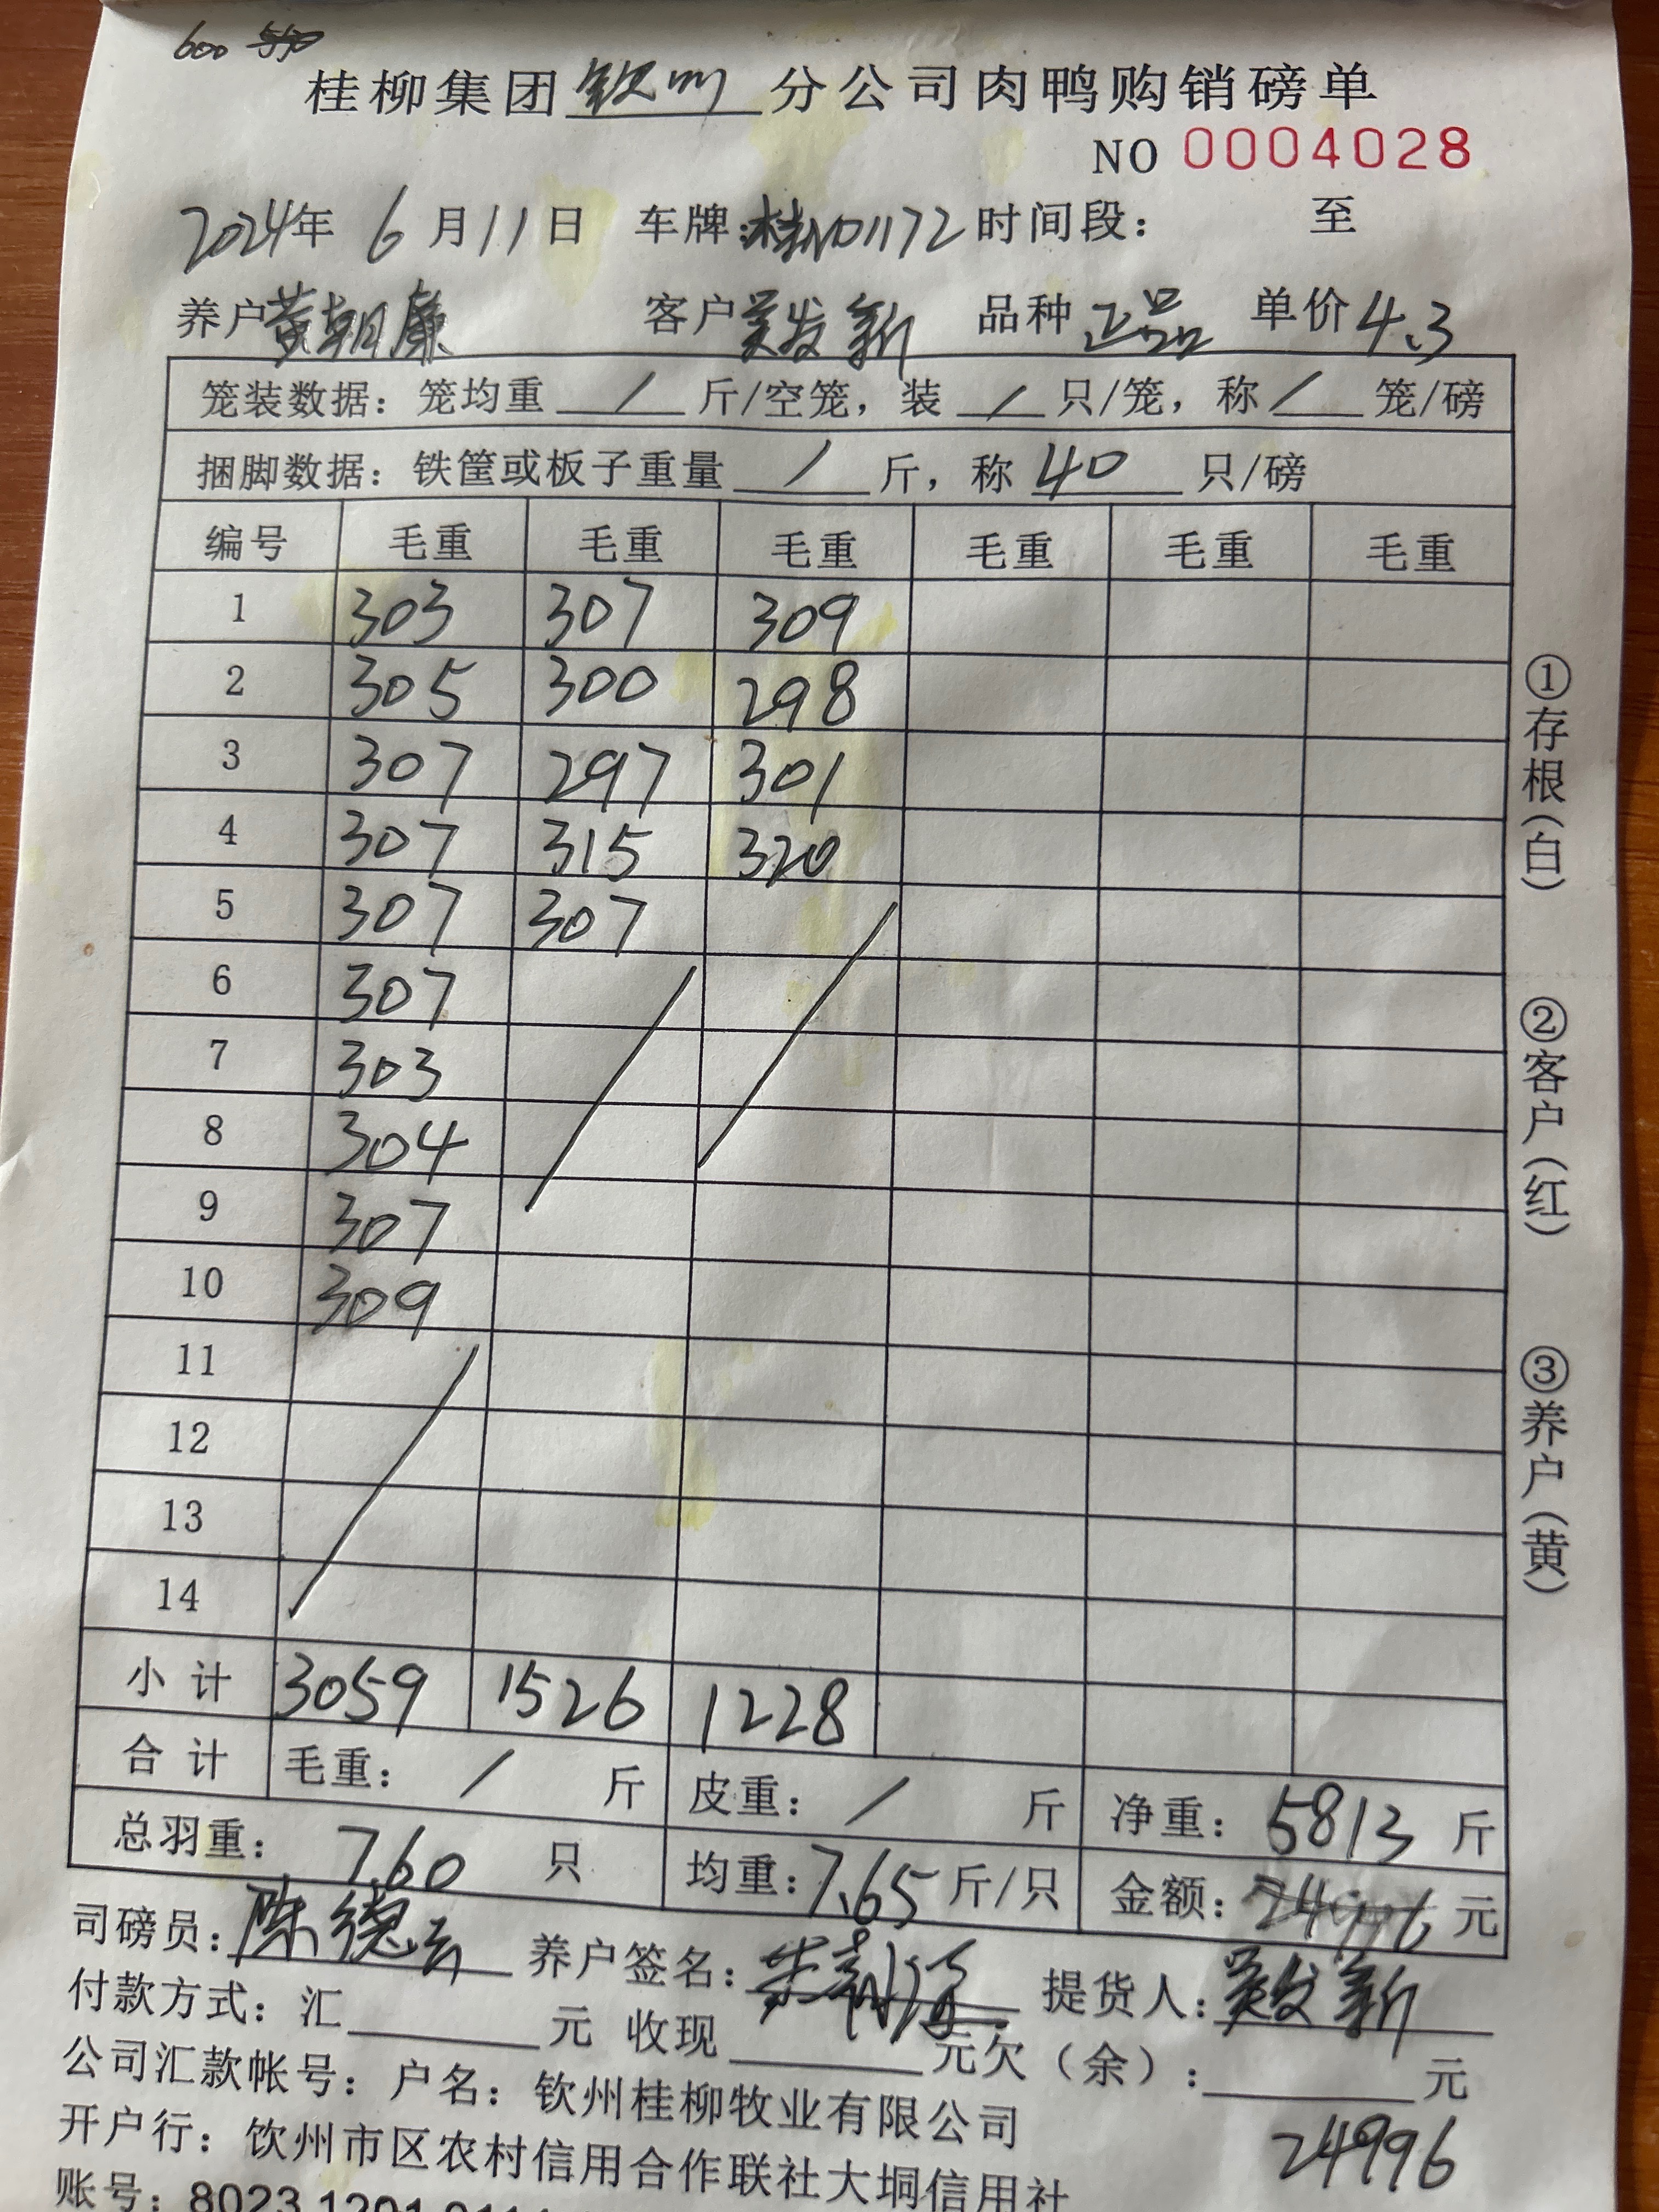 600
桂柳集团 钦州 分公司肉鸭购销磅单
NO 0004028
2024年 6月11日 车牌:桂ND1172 时间段: 至
养户 黄朝廉 客户 吴发新 品种 正品 单价 4.3
笼装数据: 笼均重 / 斤/空笼, 装 / 只/笼, 称 / 笼/磅
捆脚数据: 铁筐或板子重量 / 斤, 称 40 只/磅
编号 毛重 毛重 毛重 毛重 毛重 毛重
1 303 307 309
2 305 300 298
3 307 297 301
4 307 315 320
5 307 307
6 307
7 303
8 304
9 307
10 309
11
12
13
14
小计 3059 1526 1228
合计 毛重: / 斤 皮重: / 斤 净重: 5813 斤
总羽重: 760 只 均重: 7.65 斤/只 金额: 24996 元
司磅员: 陈德云 养户签名: 提货人: 吴发新
付款方式: 汇 元 收现 元欠(余): 元
公司汇款帐号: 户名: 钦州桂柳牧业有限公司
24996
开户行: 钦州市区农村信用合作联社大垌信用社
账号: 8023 1201
①存根(白)
②客户(红)
③养户(黄)